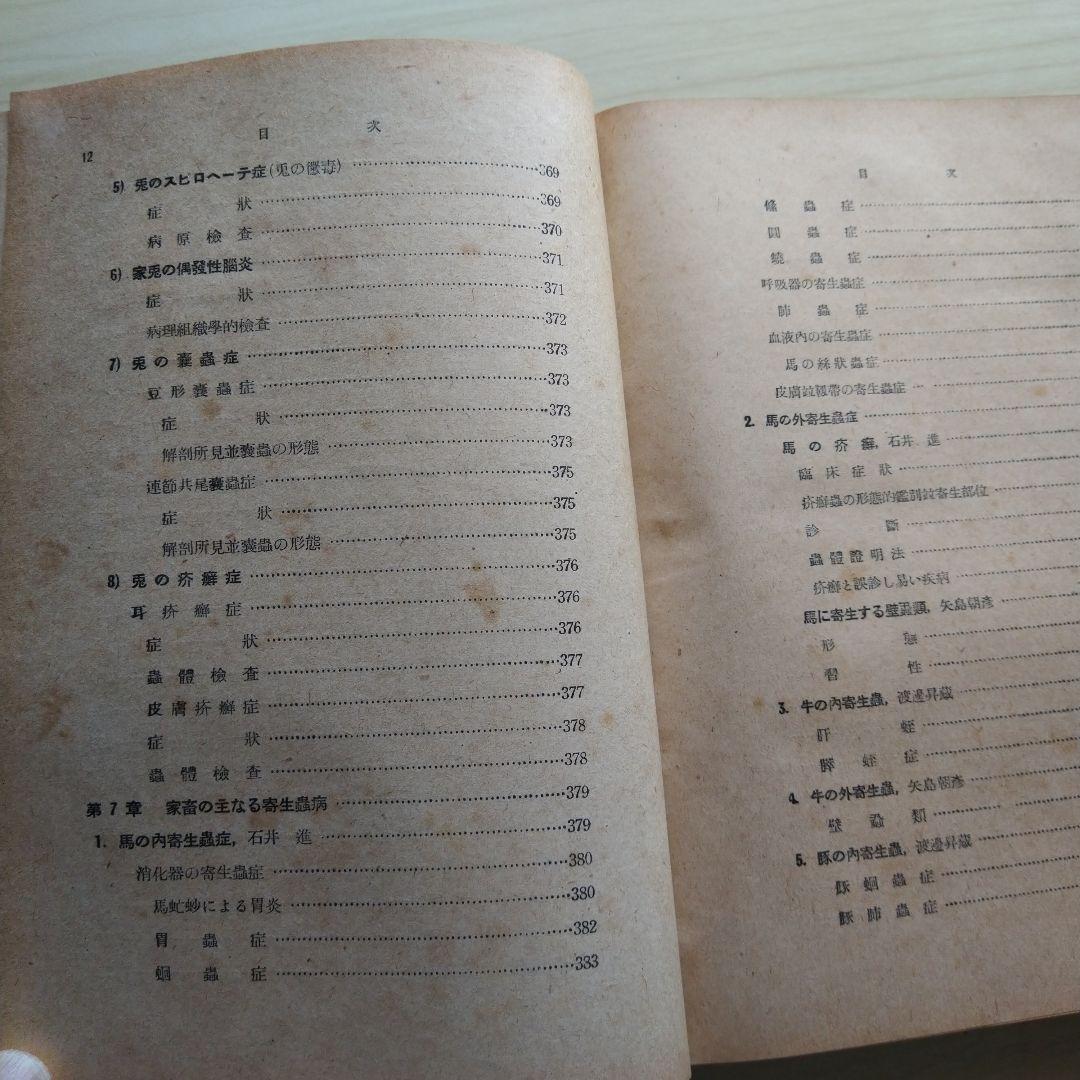 12
目 次
5) 兎のスピロヘーテ症(兎の黴毒) ……369
症 狀 ……369
病原檢査 ……370
6) 家兎の偶發性腦炎 ……371
症 狀 ……371
病理組織學的檢査 ……372
7) 兎の囊蟲症 ……373
豆形囊蟲症 ……373
症 狀 ……373
解剖所見並囊蟲の形態 ……373
連節共尾囊蟲症 ……375
症 狀 ……375
解剖所見並囊蟲の形態 ……375
8) 兎の疥癬症 ……376
耳疥癬症 ……376
症 狀 ……376
蟲體檢査 ……377
皮膚疥癬症 ……377
症 狀 ……378
蟲體檢査 ……378
第7章 家畜の主なる寄生蟲病 ……379
1. 馬の內寄生蟲症, 石井 進 ……379
消化器の寄生蟲症 ……380
馬虻蚴による胃炎 ……380
胃蟲症 ……382
蛔蟲症 ……383
目 次
條蟲症 ……
圓蟲症 ……
蟯蟲症 ……
呼吸器の寄生蟲症 ……
肺蟲症 ……
血液內の寄生蟲症 ……
馬の絲狀蟲症 ……
皮膚竝靱帶の寄生蟲症 ……
2. 馬の外寄生蟲症 ……
馬の疥癬, 石井 進 ……
臨床症狀 ……
疥癬蟲の形態的鑑別竝寄生部位 ……
診 斷 ……
蟲體證明法 ……
疥癬と誤診し易い疾病 ……
馬に寄生する壁蝨類, 矢島朝彥 ……
形 態 ……
習 性 ……
3. 牛の內寄生蟲, 渡邊昇藏 ……
肝 蛭 ……
膵蛭症 ……
4. 牛の外寄生蟲, 矢島朝彥 ……
壁蝨類 ……
5. 豚の內寄生蟲, 渡邊昇藏 ……
豚蛔蟲症 ……
豚肺蟲症 ……